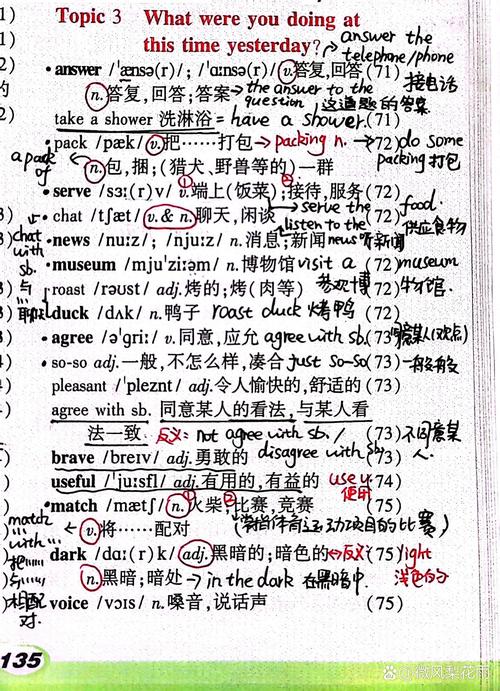 Topic 3 What were you doing at
this time yesterday?
answer the
telephone/phone
接电话
answer /ˈænsə(r)/; /ˈɑːnsə(r)/ v.答复,回答(71)
n.答复,回答;答案→the answer to the
question 这道题的答案
take a shower 洗淋浴=have a shower.(71)
pack /pæk/ v.把……打包→packing n.→(72)do some
packing打包
a pack
of
n.包,捆;(猎犬、野兽等的)一群
serve /sɜː(r)v/ v.①端上(饭菜);②接待,服务(72)
serve the food.
供应食物
chat /tʃæt/ v. & n.聊天,闲谈(72)
chat
with
sb.
与
聊天
listen to the
news听新闻
news /nuːz/; /njuːz/ n.消息;新闻(72)
museum /mjuˈziːəm/ n.博物馆visit a (72)museum
参观博物馆.
roast /rəʊst/ adj.烤的;烤(肉等)(72)
duck /dʌk/ n.鸭子 roast duck 烤鸭(72)
agree /əˈɡriː/ v.同意,应允agree with sb.(73)同意某人(观点)
so-so adj.一般,不怎么样,凑合just so-so(73)一般般
pleasant /ˈpleznt/ adj.令人愉快的,舒适的(73)
agree with sb. 同意某人的看法,与某人看
法一致 反义: not agree with sb. / (73)不同意某人.
disagree with sb.
brave /breɪv/ adj.勇敢的(73)
useful /ˈjuːsfl/ adj.有用的,有益的(74)
use v.
使用
match /mætʃ/ n.①火柴;②比赛,竞赛(75)
v.将……配对
(常指体育运动项目的比赛)
match
...
with...
把...
与...
相配
对.
dark /dɑː(r)k/ adj.黑暗的;暗色的↔反义(75)light
浅色的
n.黑暗;暗处→in the dark 在黑暗中.
voice /vɔɪs/ n.嗓音,说话声(75)
135
微风梨花雨